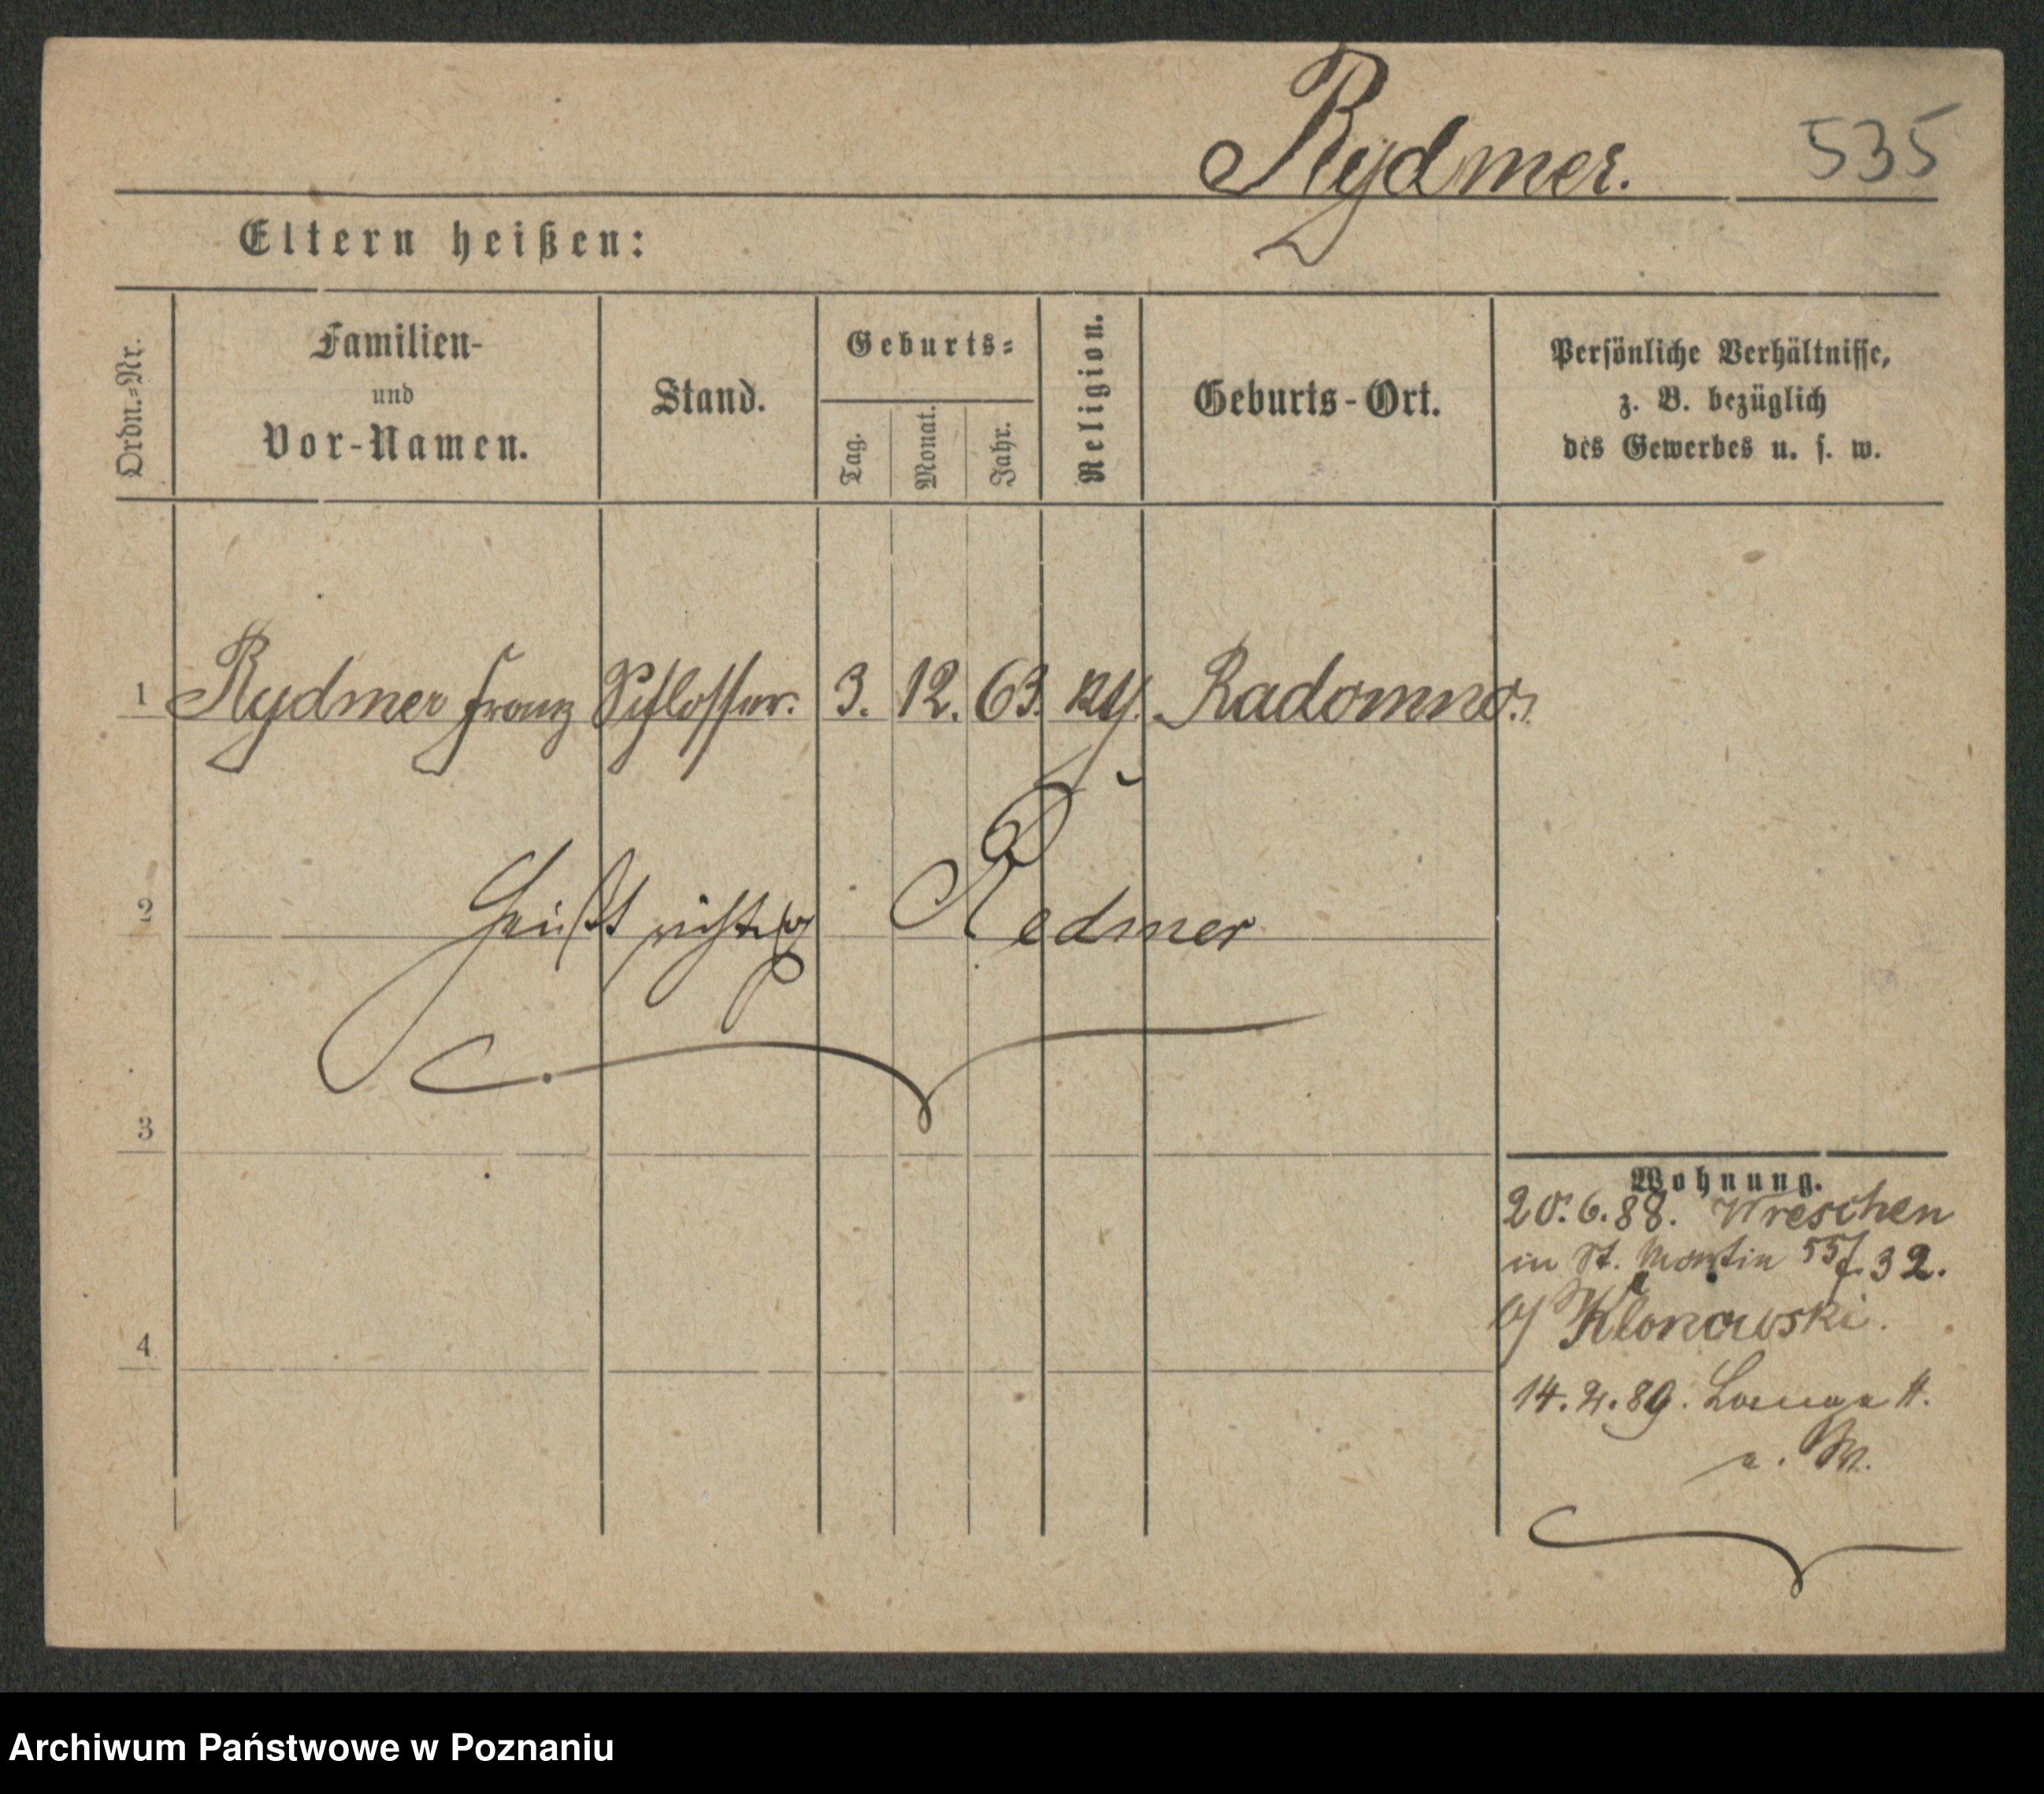 Rydmer. 535
Eltern heißen:
Ordn.-Nr.
Familien-
und
Vor-Namen.
Stand.
Geburts-
Tag.
Monat.
Jahr.
Religion.
Geburts-Ort.
Persönliche Verhältnisse,
z. B. bezüglich
des Gewerbes u. s. w.
1 Rydmer Franz Schlosser. 3. 12. 63. Radomno.
2 heißt richtig Redmer
3
Wohnung.
20.6.88. Wreschen
in St. Martin 32.
Klonowski.
4
14. 89.